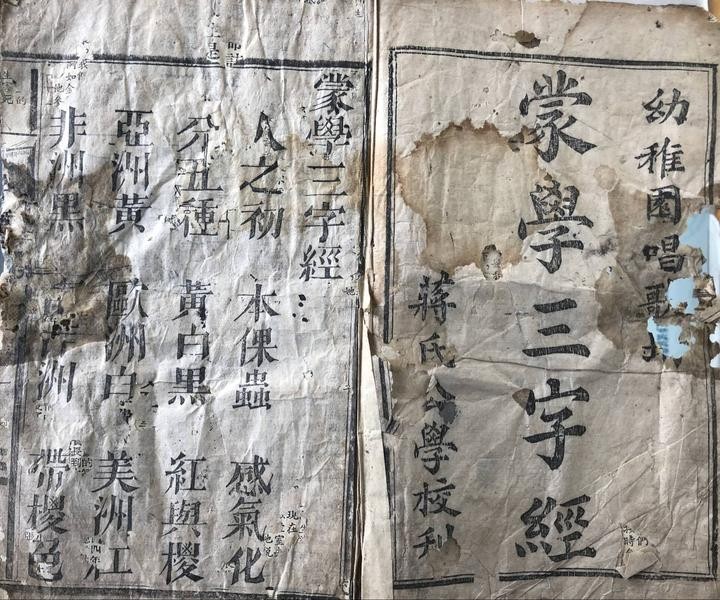 幼稚園唱歌
蒙學三字經
蔣氏公學校刊
蒙學三字經
人之初 本倮蟲 感氣化
分五種 黃白黑 紅與椶
亞洲黃 歐洲白 美洲紅
非洲黑 洋洲 帶椶色